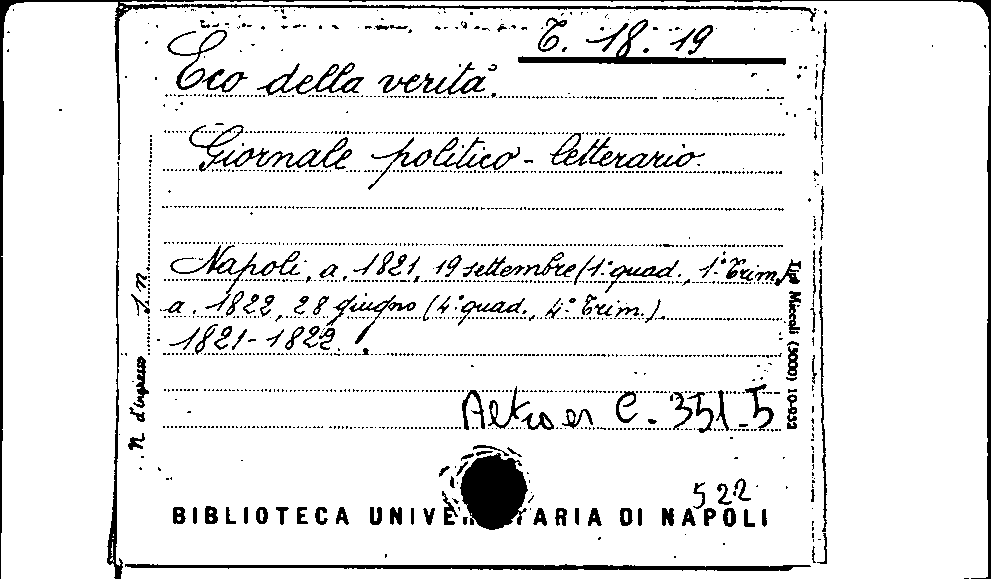 T. 18. 19
Eco della verità.
Giornale politico - letterario.
Napoli, a. 1821, 19 settembre (1° quad., 1° Trim.)
a. 1822, 28 giugno (4° quad., 4° Trim.).
1821-1822.
Altro es C. 351-5
522
BIBLIOTECA UNIVE ARIA DI NAPOLI
N. d'ingresso
Tip. Miccoli (5000) 10-932